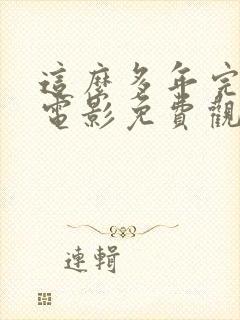 這麼多年完
電影免費觀
連輯